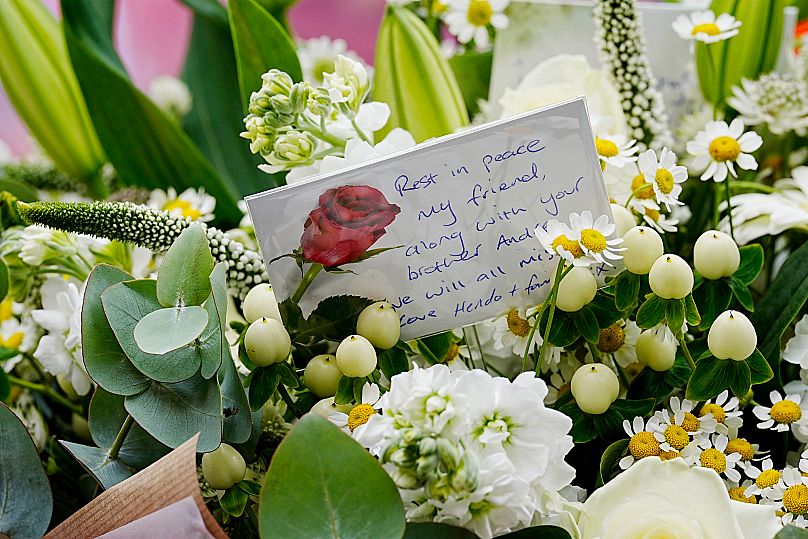 Rest in peace
my friend,
along with your
brother
we will all
Love Hendo + fam